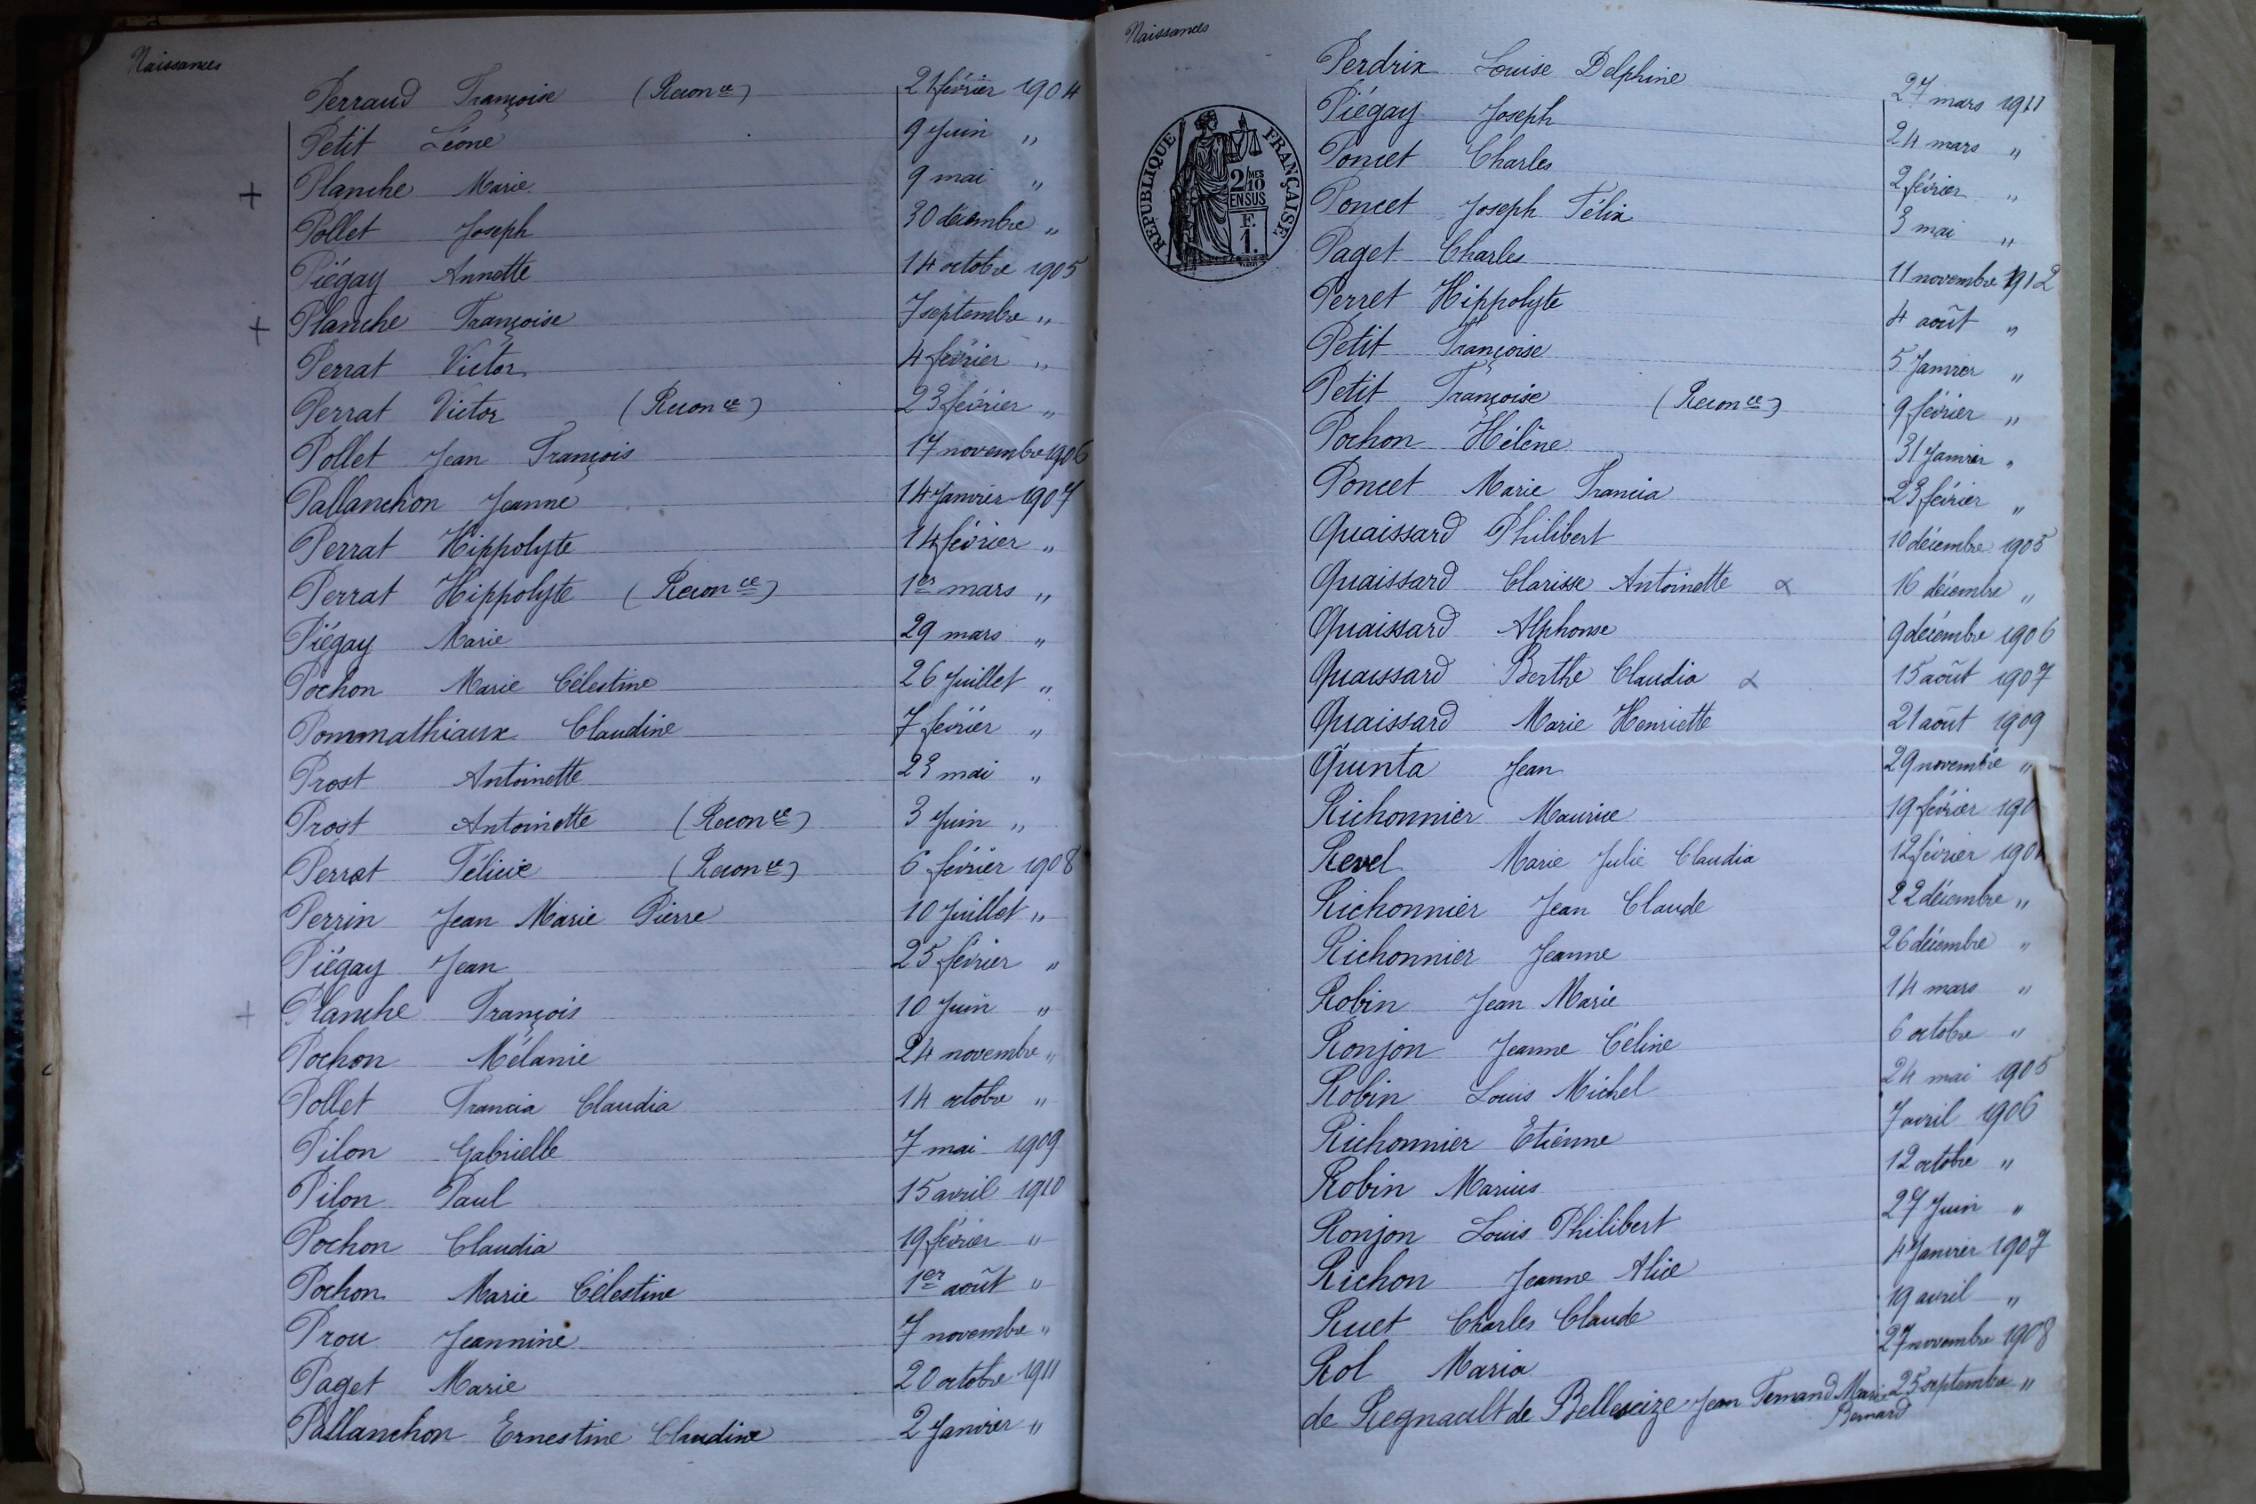 Naissances
Perraud Françoise (Recon ce) 21 février 1904
Petit Léone 9 Juin "
+ Planche Marie 9 mai "
Pollet Joseph 30 décembre "
Piégay Annette 14 octobre 1905
+ Planche Françoise 7 septembre "
Perrat Victor 4 février "
Perrat Victor (Recon ce) 23 février "
Pollet Jean François 17 novembre 1906
Pallanchon Jeanne 14 Janvier 1907
Perrat Hippolyte 14 février "
Perrat Hippolyte (Recon ce) 1er mars "
Piégay Marie 29 mars "
Pochon Marie Célestine 26 Juillet "
Pommathiaux Claudine 7 février "
Prost Antoinette 23 mai "
Prost Antoinette (Recon ce) 3 Juin "
Perrat Félicie (Recon ce) 6 février 1908
Perrin Jean Marie Pierre 10 Juillet "
Piégay Jean 25 février "
+ Planche François 10 Juin "
Pochon Mélanie 24 novembre "
Pollet Francia Claudia 14 octobre "
Pilon Gabrielle 7 mai 1909
Pilon Paul 15 avril 1910
Pochon Claudia 19 février "
Pochon Marie Célestine 1er août "
Prou Jeannine 7 novembre "
Paget Marie 20 octobre 1911
Pallanchon Ernestine Claudine 2 Janvier "
Naissances
REPUBLIQUE FRANÇAISE
2 MES
/10
EN SUS
F.
1.
Perdrix Louise Delphine 27 mars 1911
Piégay Joseph 24 mars "
Poncet Charles 2 février "
Poncet Joseph Félix 3 mai "
Paget Charles 11 novembre 1912
Perret Hippolyte 4 août "
Petit Françoise 5 Janvier "
Petit Françoise (Recon ce) 9 février "
Pochon Hélène 31 Janvier "
Poncet Marie Francia 23 février "
Quaissard Philibert 10 décembre 1905
Quaissard Clarisse Antoinette α 16 décembre "
Quaissard Alphonse 9 décembre 1906
Quaissard Berthe Claudia α 15 août 1907
Quaissard Marie Henriette 21 août 1909
Quinta Jean 29 novembre "
Richonnier Maurice 19 février 190
Revel Marie Julie Claudia 12 février 190
Richonnier Jean Claude 22 décembre "
Richonnier Jeanne 26 décembre "
Robin Jean Marie 14 mars "
Ronjon Jeanne Céline 6 octobre "
Robin Louis Michel 24 mai 1905
Richonnier Etienne 7 avril 1906
Robin Marius 12 octobre "
Ronjon Louis Philibert 27 Juin "
Richon Jeanne Alice 4 Janvier 1907
Ruet Charles Claude 19 avril "
Rol Maria 27 novembre 1908
de Regnault de Bellescize Jean Fernand Marie 25 septembre "
Bernard